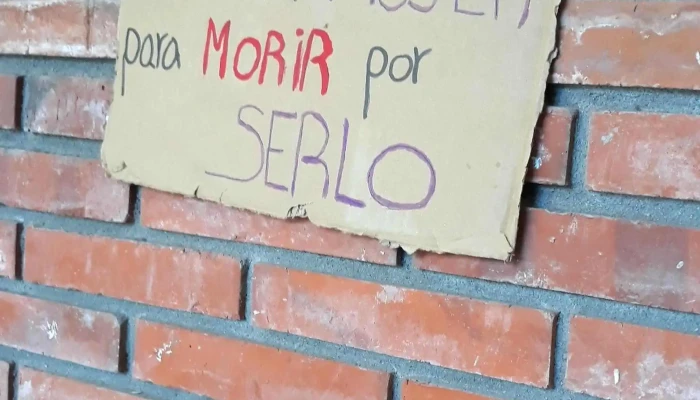 para MORIR por
SERLO